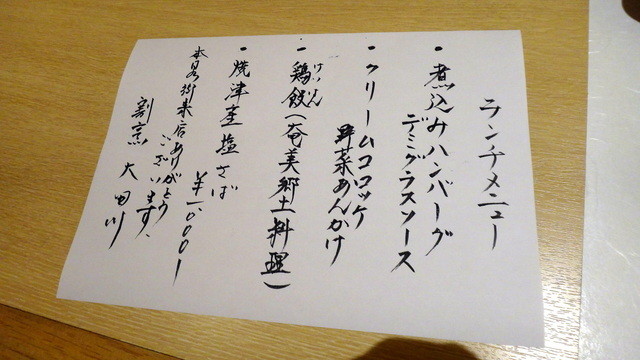 ランチメニュー
・煮込みハンバーグ
デミグラスソース
・クリームコロッケ
野菜あんかけ
・鶏飯(奄美郷土料理)
けいはん
・焼津産塩さば
¥1,000ー
本日御来店ありがとう
ございます、
割烹 大田川